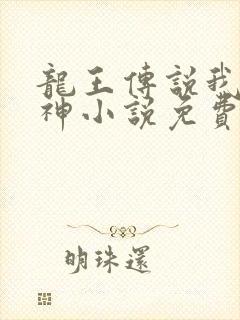 龍王傳說我
神小說免費
明珠還